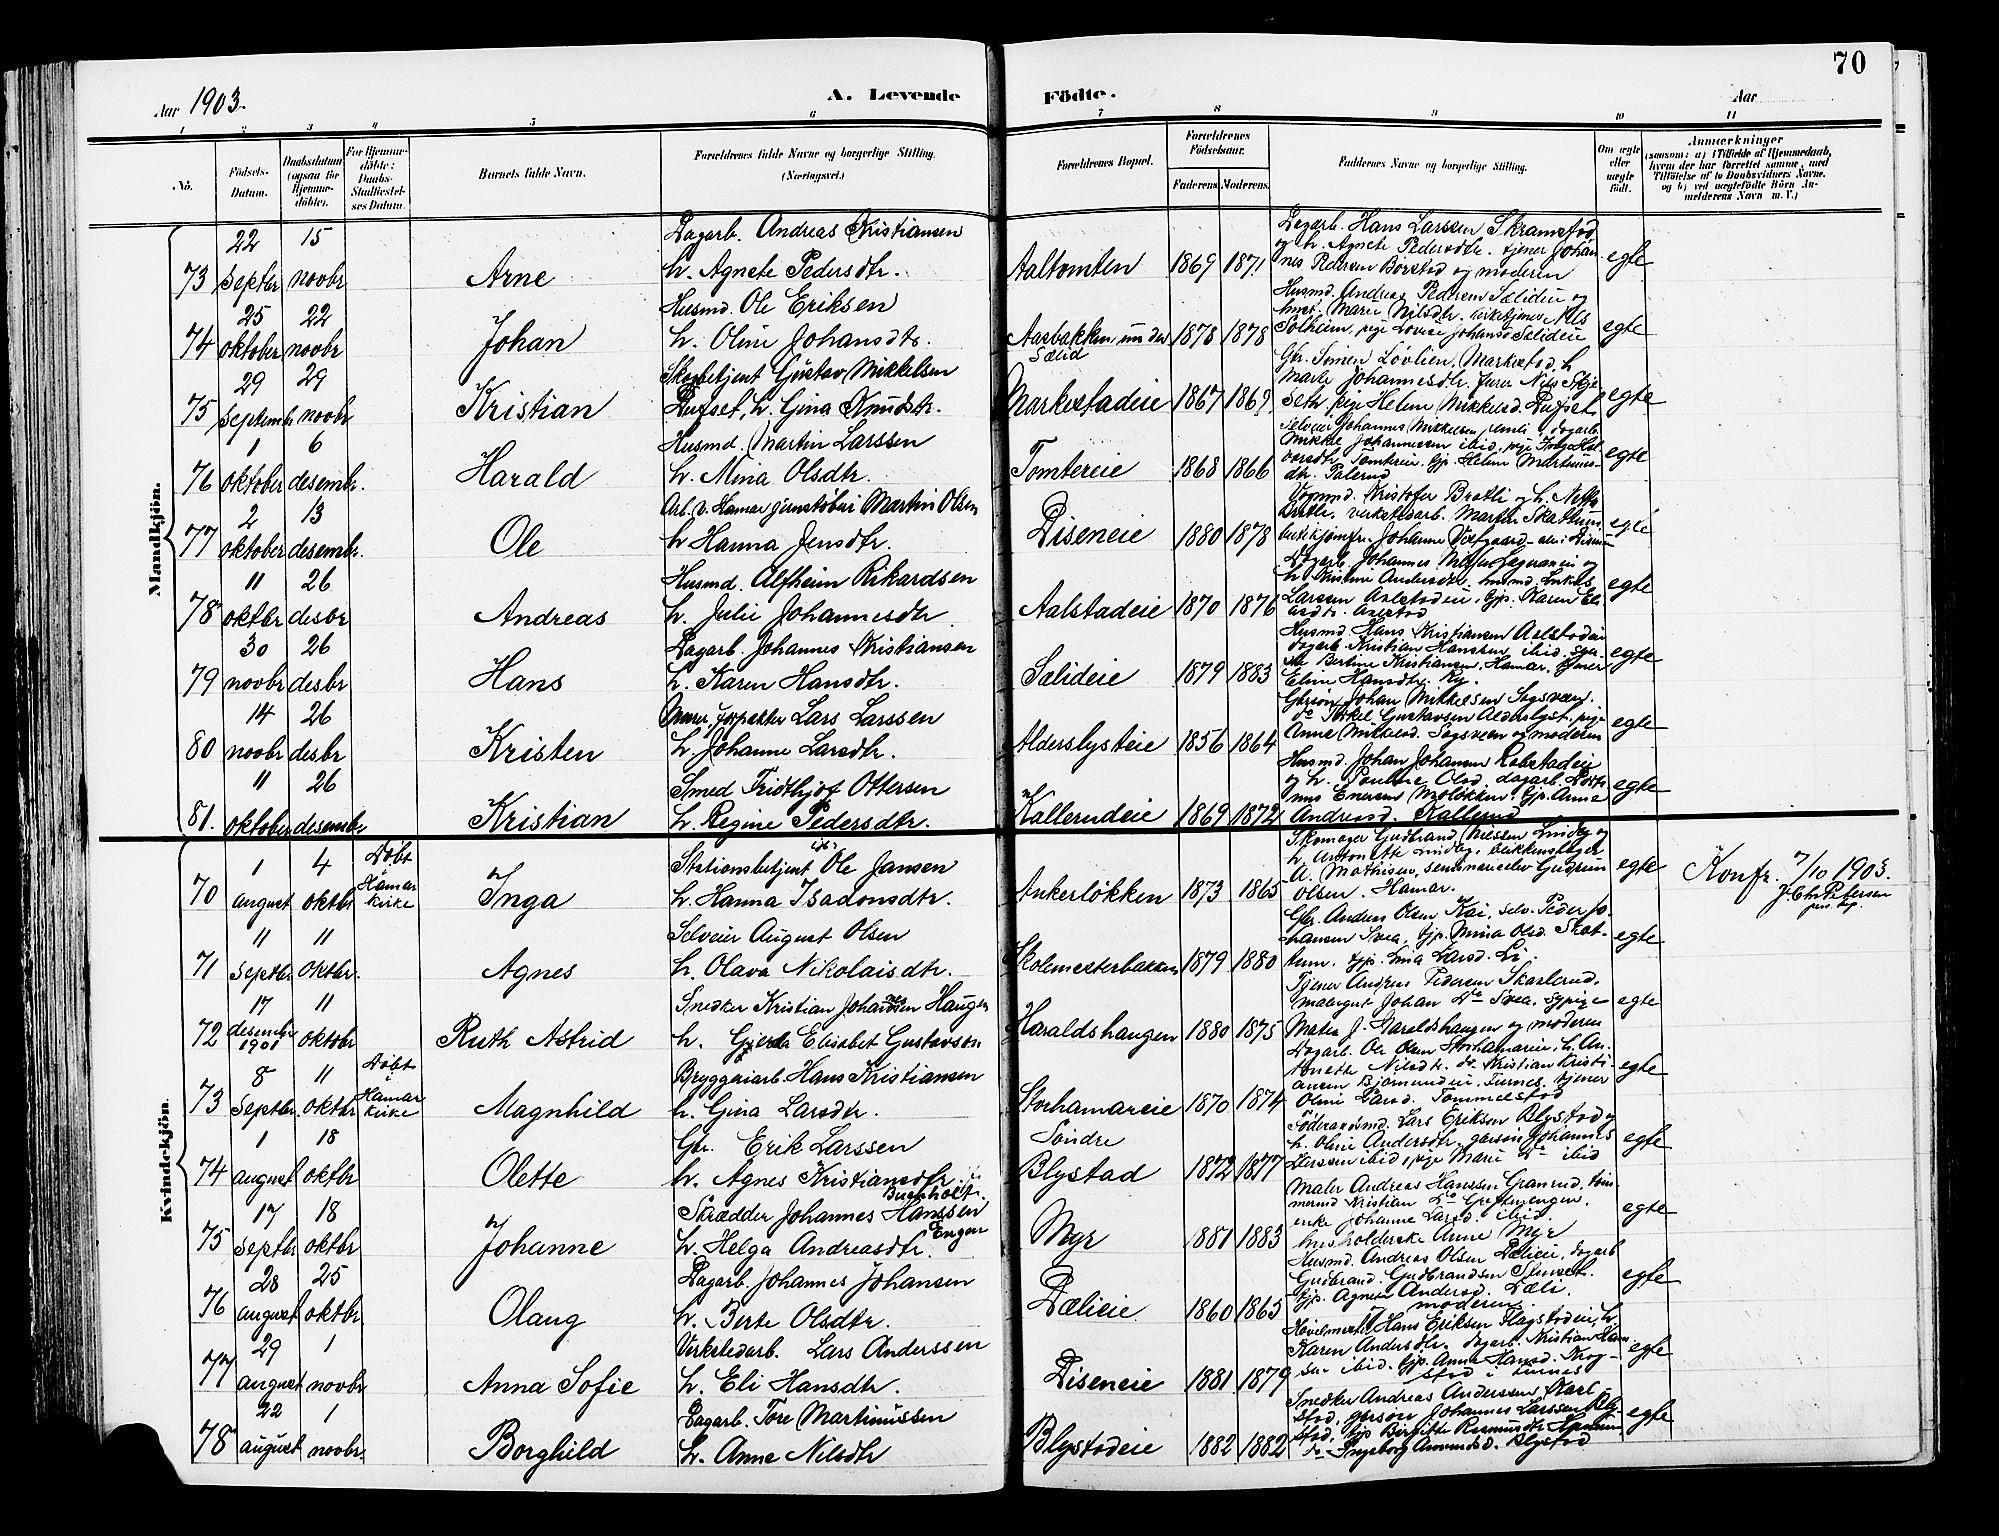 70
Aar 1903.
A. Levende Födte.
Aar
1 2 3 4 5 6 7 8 9 10 11
No.
Födsels-Datum.
Daabsdatum (ogsaa for Hjemme-döbte).
For Hjemme-döbte: Daabs-Stadfæstel-ses Datum.
Barnets fulde Navn.
Forældrenes fulde Navne og borgerlige Stilling. (Næringsvei.)
Forældrenes Bopæl.
Forældrenes Födselsaar.
Faderens. Moderens.
Faddernes Navne og borgerlige Stilling.
Om ægte eller uægte födt.
Anmærkninger
(saasom: a) i Tilfælde af Hjemmedaab, hvem der har forrettet samme, med Tilföielse af to Daabsvidners Navne, og b) ved uægtefödte Börn Anmelderens Navn m. V.)
Mandkjön.
73 22 septbr 15 novbr Arne
Dagarb. Andreas Kristiansen
h. Agnete Pedersdtr.
Aaltomten 1869 1871
Dagarb. Hans Larssen Skramstad
og h. Agnete Pedersdtr. tjener Johan-
nes Pedersen Börstad og moderen
egte
74 25 oktober 22 novbr Johan
Husmd. Ole Eriksen
h. Oline Johansdtr.
Aasbakken under Sælid 1878 1878
Husmd. Andreas Pedersen Sælideie og
hust. Marie Nilsdtr. kirketjener Nils
Solheim, pige Lovise Johansd Sælideie
egte
75 29 septembr 29 novbr Kristian
Skogbetjent Gustav Mikkelsen
Dufset, h. Gina Knudstr.
Markestadeie 1867 1869
Gbr. Simen Lövlien, Markestad, h
Marte Johannesdtr. furer Nils Skje-
seth, pige Helene Mikkelsd. Dufset
egte
76 1 oktober 6 desembr. Harald
Husmd. Martin Larssen
h. Mina Olsdtr.
Tomtereie 1868 1866
Selveier Johannes Mikkelsen dagarb.
Mikkel Johannessen ibid, pige Inga Hal-
vorsdtr Tomtereie. tjp. Helene Martinus-
dtr. Palerud
egte
77 2 oktober 13 desembr. Ole
Arb. v. Hamar jernstöberi Martin Olsen
h Hanna Jensdtr.
Diseneie 1880 1878
Vognmd. Kristofer Bratli og h. Nette
Bratli, verkstedsarb. Martin Skattum
butikjomfr. Johanne Vestgaard
egte
78 11 oktbr 26 desbr Andreas
Husmd. Alfheim Rikardsen
h. Julie Johannesdtr
Aalstadeie 1870 1876
Dagarb Johannes og
h. Kristine Andersdtr. husmd. Lukas
Larssen Aalstadeie, tjp. Karen Eli-
asdtr. Aalstad
egte
79 30 novbr 26 desbr Hans
Dagarb. Johannes Kristiansen
h. Karen Hansdtr.
Sælideie 1879 1883
Husmd Hans Kristiansen Aalstadeie
dagarb. Kristian Hanssen ibid.
Bertine Kristiansen, Hamar, tjener
Eline Hansdtr. Ry.
egte
80 14 novbr 26 desbr Kristen
Murer, forpakter Lars Larssen
h. Johanne Larsdtr.
Alderslysteie 1856 1864
Gaardm Johan Mikkelsen Sagsveen.
do Torkel Gustavsen Alderslyst, pige
Anne Mikkelsd. Sagsveen og moderen
egte
81. 11 oktober 26 desembr Kristian
Smed Fridthjof Ottersen
h. Regine Pedersdtr.
Kallerudeie 1869 1872
Husmd. Johan Johansen Robstadeie
og h. Pauline Olsd, dagarb. Mort-
inus Enersen Moløkken, tjp. Anne
Andreasd. Kallerud
egte
Kvindekjön.
70 1 august 4 oktbr Döbt i Hamar kirke Inga
Stationsbetjent Ole Jansen
h. Hanna Isadorsdtr.
Ankerløkken 1873 1865
Skomager Gudbrand Nielssen Lindag og
h. Antonette Lindag, blikkenslager
A. Mathisen, seminarieelev Gudrun
Olsen. Hamar.
egte
Konfr. 7/10 1903.
J. Chr Petersen
pers. kap.
71 11 septbr 11 oktbr. Agnes
Selveier August Olsen
h. Olava Nikolaisdtr.
Skolemesterbakken 1879 1880
Gbr. Anders Olsen Kai, selv. Peder Jo-
hansen Svea, tjp. Mina Olsd. Skat-
tum. tjp. Lina Larsd. Li.
egte
72 17 desembr 1901 11 oktobr Ruth Astrid
Snedker Kristian Johanssen Haugen
h. Gjerda Elisabet Gustavson
Haraldshaugen 1880 1875
Tjener Andreas Pedersen Skarlerud,
malergut Johan do Svea, sypige
Matea J. Haraldshaugen og moderen
egte
73 8 septbr. 11 oktbr Döbt i Hamar kirke Magnhild
Bryggeriarb. Hans Kristiansen
h. Gina Larsdtr.
Storhamareie 1870 1874
Dagarb. Ole Olsen Storhamareie, h. An-
tonette Nilsdtr. do. Kristian Kristi-
ansen Bjørnundeie, Furnes. tjener
Oline Larsd. Tommelstad
egte
74 1 august 18 oktbr Olette
Gbr. Erik Larssen
h. Agnes Kristiansdtr.
Söndre Blystad 1872 1877
Föderaadsmd. Lars Eriksen Blystad og
h. Oline Andersdtr. garson Johannes
Larssen ibid, pige Marie do ibid
egte
75 17 septbr 18 oktbr Johanne
Skrædder Johannes Hanssen Buchholt.
h. Helga Andreasdtr. Engen
Myr 1881 1883
Maler Andreas Hanssen Granrud, töm-
mermd Kristian do Grefterengen,
enke Johanne Larsd. ibid.
husholderske Anne Myr
egte
76 28 august 25 oktbr. Olaug
Dagarb. Johannes Johansen
h. Berte Olsdtr.
Dælieie 1860 1865
Husmd. Andreas Olsen Dælieie, dagarb
Gudbrand Gudbrandsen Stenset.
tjp. Agnete Andersd. Dæli.
moderen.
egte
77 29 august 1 novbr Anna Sofie
Verkstedarb. Lars Anderssen
h. Eli Hansdtr.
Diseneie 1881 1879
Hövelmester Hans Eriksen Flagstadeie, h.
Karen Andersdtr. dagarb. Kristian Hans-
sen ibid. tjp. Anna Hansd. Krog-
stad i Furnes
egte
78 22 august 1 novbr. Borghild
Dagarb. Tore Martinussen
h. Anne Nilsdtr
Blystadeie 1882 1882
Snedker Andreas Anderssen Karl-
stad, garson Johannes Larssen Bly-
stad, tjp Birgitte Rasmusdtr
do Ingeborg Amundsd. Blystad
egte